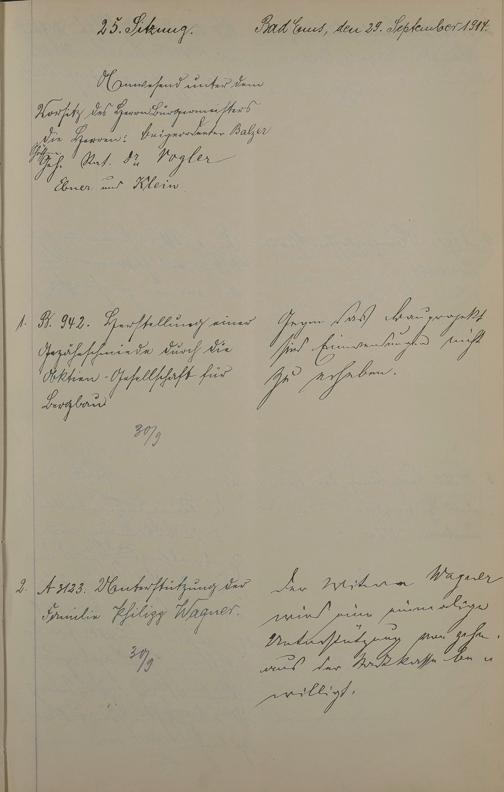 25. Sitzung.
Bad Ems, den 29. September 1914.
Anwesend unter dem
Vorsitz des Herrn Bürgermeisters
die Herren: Beigeordneter Balzer
Geh. Rat. Dr. Vogler
Ebner und Klein
1. B. 942. Herstellung einer
Gezäheschmiede durch die
Aktien-Gesellschaft für
Bergbau
30/9
Gegen das Bauprojekt
sind Einwendungen nicht
zu erheben.
2. A 3123. Unterstützung der
Familie Philipp Wagner.
30/9
Der Witwe Wagner
wird eine einmalige
Unterstützung von
aus der Stadtkasse be
willigt.